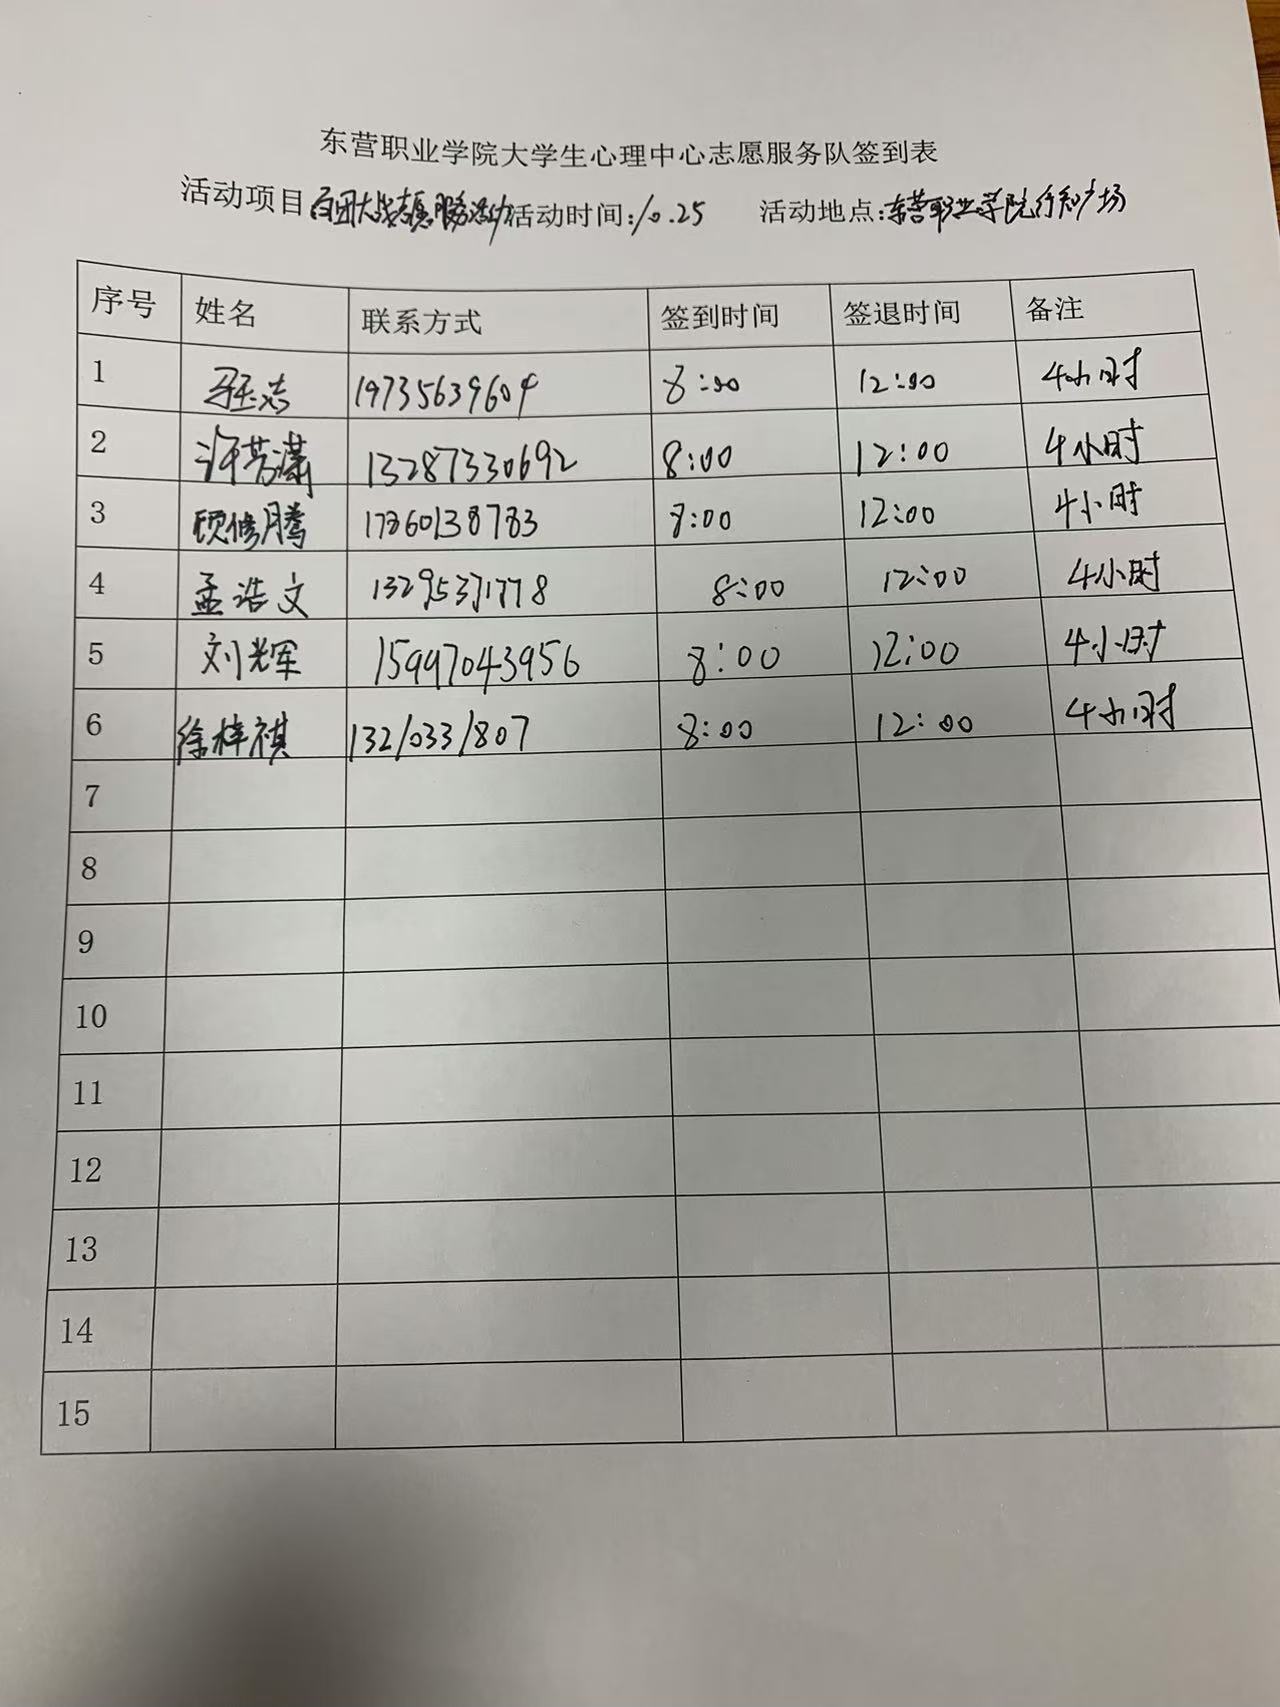 东营职业学院大学生心理中心志愿服务队签到表
活动项目百团大战志愿服务活动活动时间:10.25 活动地点:东营职业学院行知广场
序号 姓名 联系方式 签到时间 签退时间 备注
1 19735639604 8:00 12:00 4小时
2 许芳潇 13287330692 8:00 12:00 4小时
3 顾修腾 17860138783 8:00 12:00 4小时
4 孟浩文 13295371778 8:00 12:00 4小时
5 刘光军 15997043956 8:00 12:00 4小时
6 徐梓祺 13210331807 8:00 12:00 4小时
7
8
9
10
11
12
13
14
15